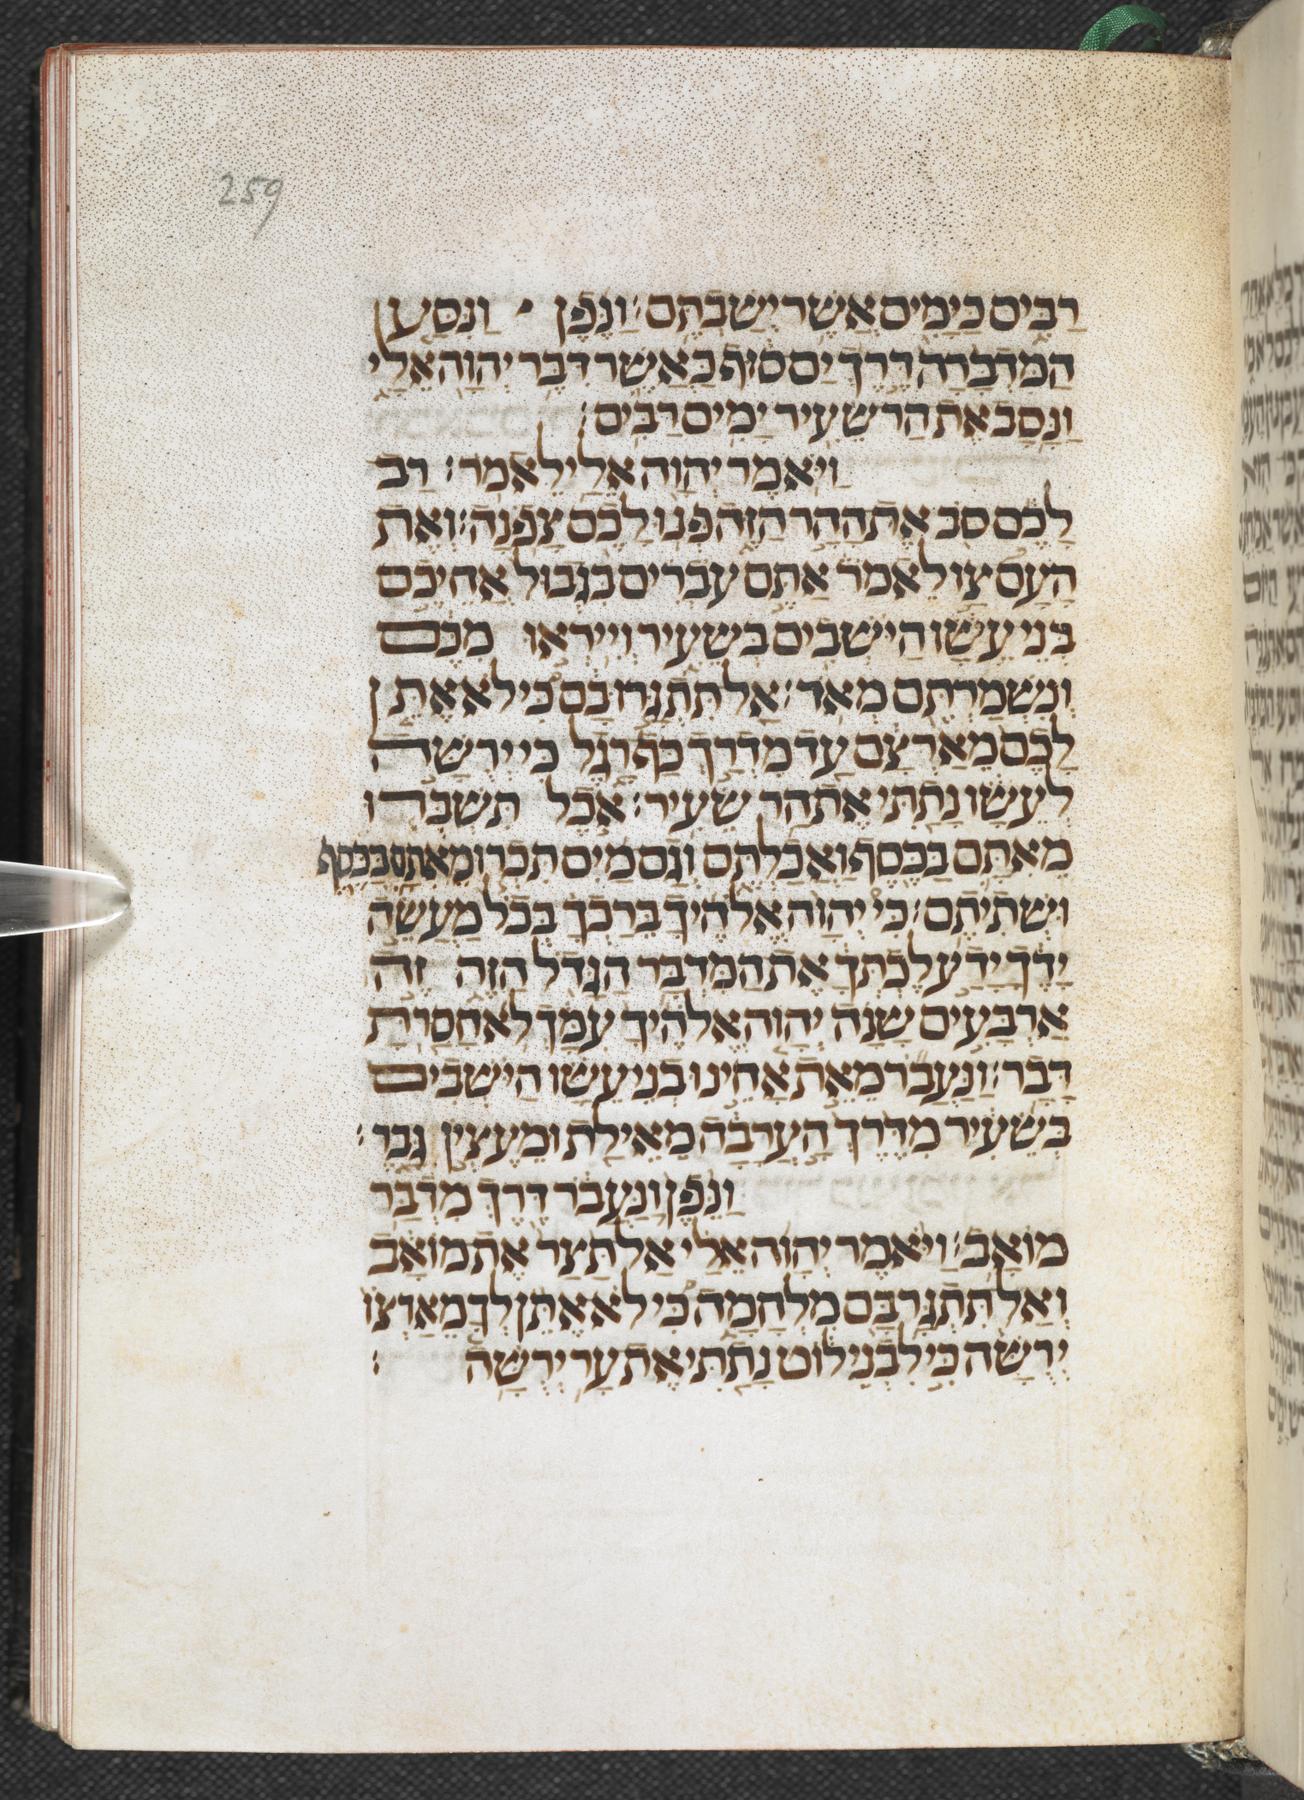 259
רַבִּים כַּיָּמִים אֲשֶׁר יְשַׁבְתֶּם: וַנֵּפֶן וַנִּסַּע
הַמִּדְבָּרָה דֶּרֶךְ יַם סוּף כַּאֲשֶׁר דִּבֶּר יְהוָה אֵלָי
וַנָּסָב אֶת הַר שֵׂעִיר יָמִים רַבִּים:
וַיֹּאמֶר יְהוָה אֵלַי לֵאמֹר: רַב
לָכֶם סֹב אֶת הָהָר הַזֶּה פְּנוּ לָכֶם צָפֹנָה: וְאֶת
הָעָם צַו לֵאמֹר אַתֶּם עֹבְרִים בִּגְבוּל אֲחֵיכֶם
בְּנֵי עֵשָׂו הַיֹּשְׁבִים בְּשֵׂעִיר וְיִירְאוּ מִכֶּם
וְנִשְׁמַרְתֶּם מְאֹד: אַל תִּתְגָּרוּ בָם כִּי לֹא אֶתֵּן
לָכֶם מֵאַרְצָם עַד מִדְרַךְ כַּף רָגֶל כִּי יְרֻשָּׁה
לְעֵשָׂו נָתַתִּי אֶת הַר שֵׂעִיר: אֹכֶל תִּשְׁבְּרוּ
מֵאִתָּם בַּכֶּסֶף וַאֲכַלְתֶּם וְגַם מַיִם תִּכְרוּ מֵאִתָּם בַּכֶּסֶף
וּשְׁתִיתֶם: כִּי יְהוָה אֱלֹהֶיךָ בֵּרַכְךָ בְּכֹל מַעֲשֵׂה
יָדֶךָ יָדַע לֶכְתְּךָ אֶת הַמִּדְבָּר הַגָּדֹל הַזֶּה זֶה
אַרְבָּעִים שָׁנָה יְהוָה אֱלֹהֶיךָ עִמָּךְ לֹא חָסַרְתָּ
דָּבָר: וַנַּעֲבֹר מֵאֵת אַחֵינוּ בְנֵי עֵשָׂו הַיֹּשְׁבִים
בְּשֵׂעִיר מִדֶּרֶךְ הָעֲרָבָה מֵאֵילַת וּמֵעֶצְיֹן גָּבֶר:
וַנֵּפֶן וַנַּעֲבֹר דֶּרֶךְ מִדְבַּר
מוֹאָב: וַיֹּאמֶר יְהוָה אֵלַי אַל תָּצַר אֶת מוֹאָב
וְאַל תִּתְגָּר בָּם מִלְחָמָה כִּי לֹא אֶתֵּן לְךָ מֵאַרְצוֹ
יְרֻשָּׁה כִּי לִבְנֵי לוֹט נָתַתִּי אֶת עָר יְרֻשָּׁה :